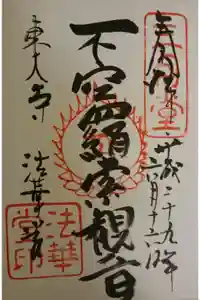 奉拝
平成二十九年
月十六日
不空羂索観音
東大寺
法華堂
法華堂印